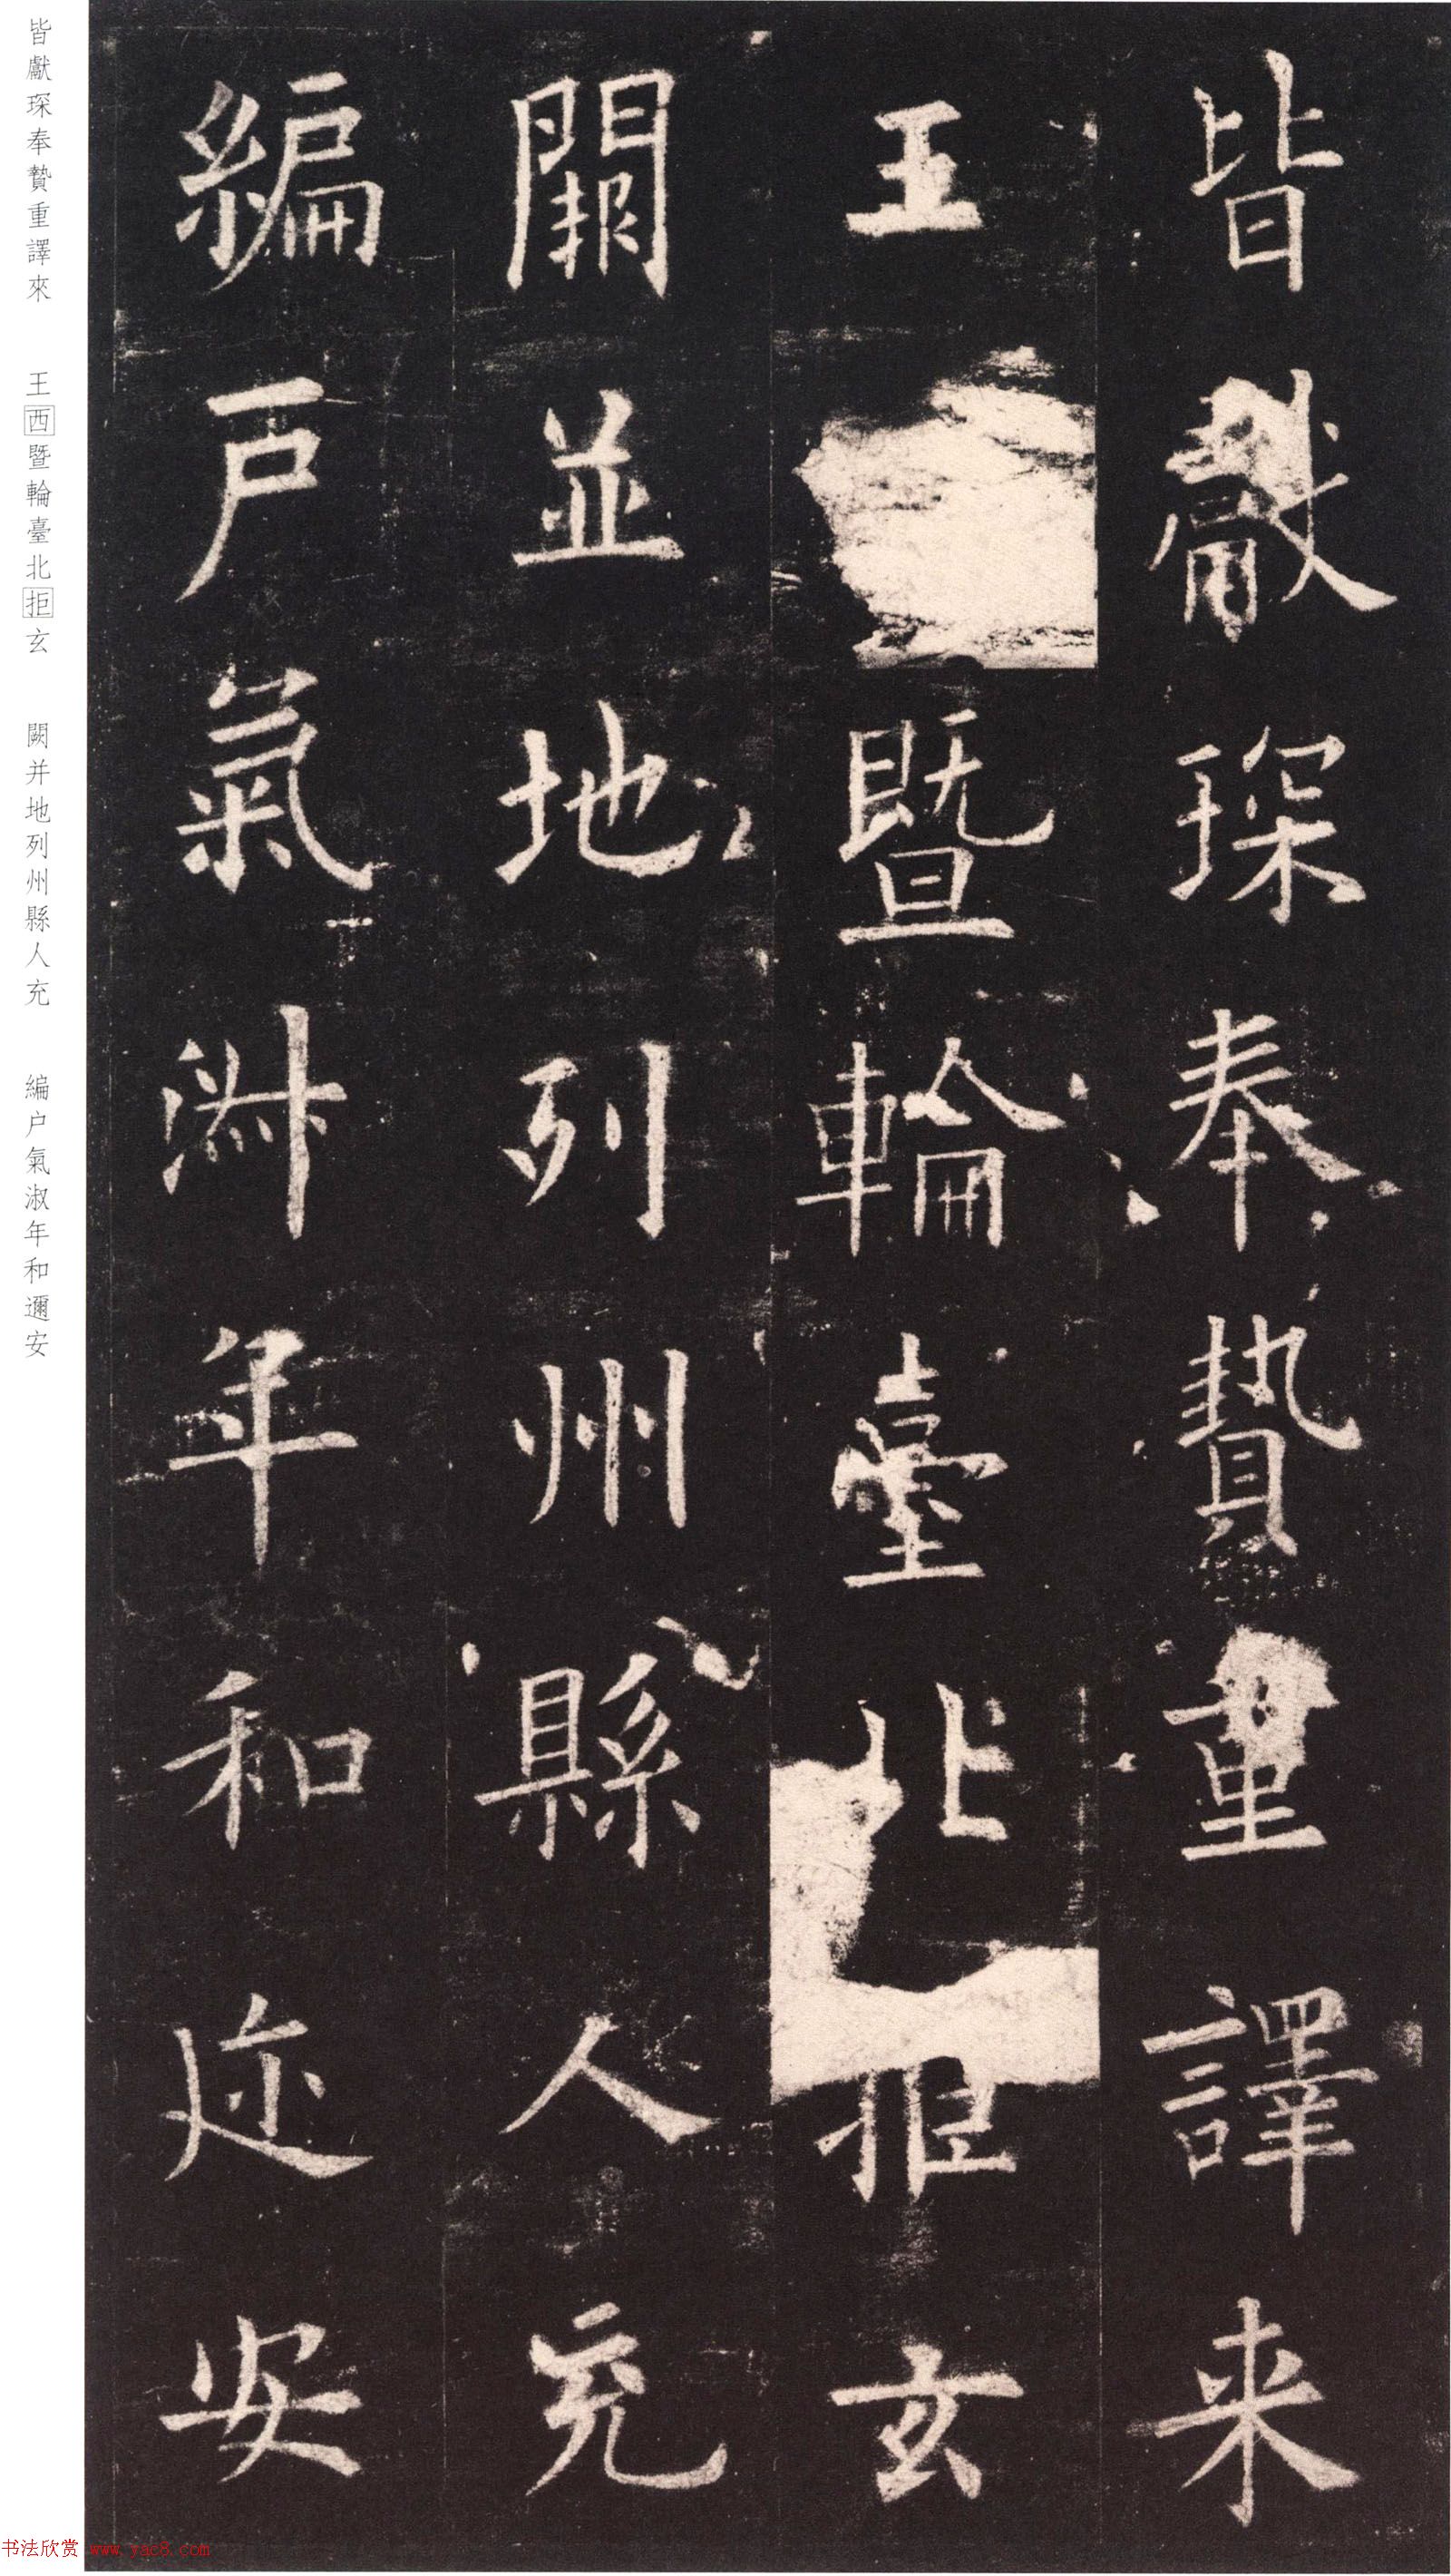 皆獻琛奉贄重譯来
王暨輪臺北拒玄
闕並地列州縣人充
編戶氣淑年和迩安
皆獻琛奉贄重譯來 王西暨輪臺北拒玄 闕并地列州縣人充 編户氣淑年和邇安
书法欣赏 www.yac8.com